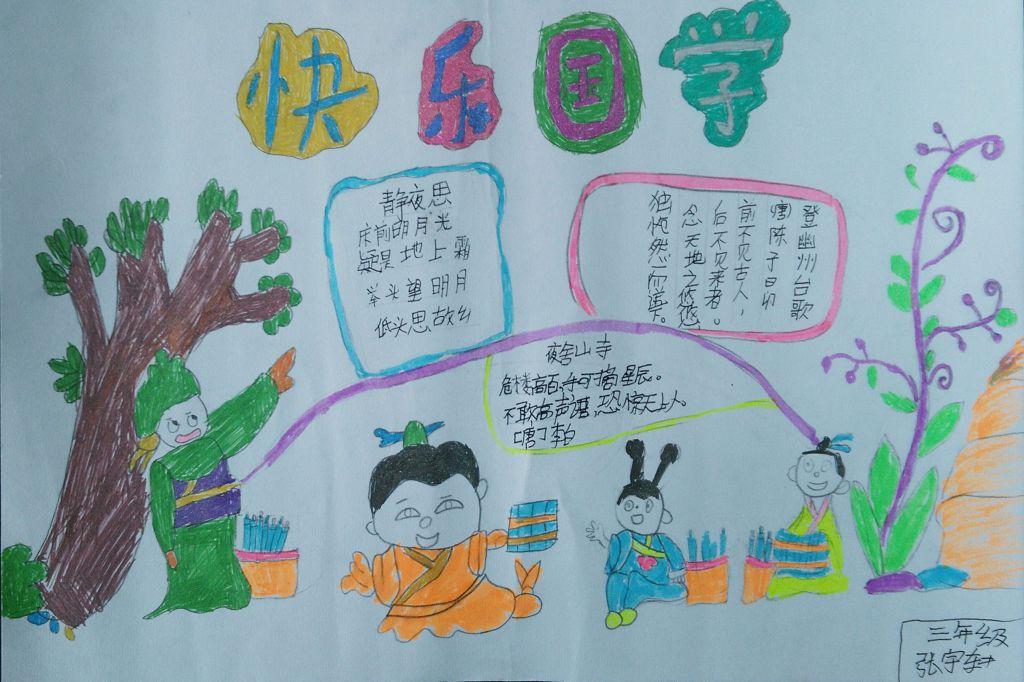 快乐国学
静夜思
床前明月光
疑是地上霜
举头望明月
低头思故乡
登幽州台歌
(唐)陈子昂
前不见古人，
后不见来者。
念天地之悠悠
独怆然而涕下。
夜舍山寺
危楼高百，手可摘星辰。
不敢高声语，恐惊天上人。
[唐]李白
三年级
张宇轩